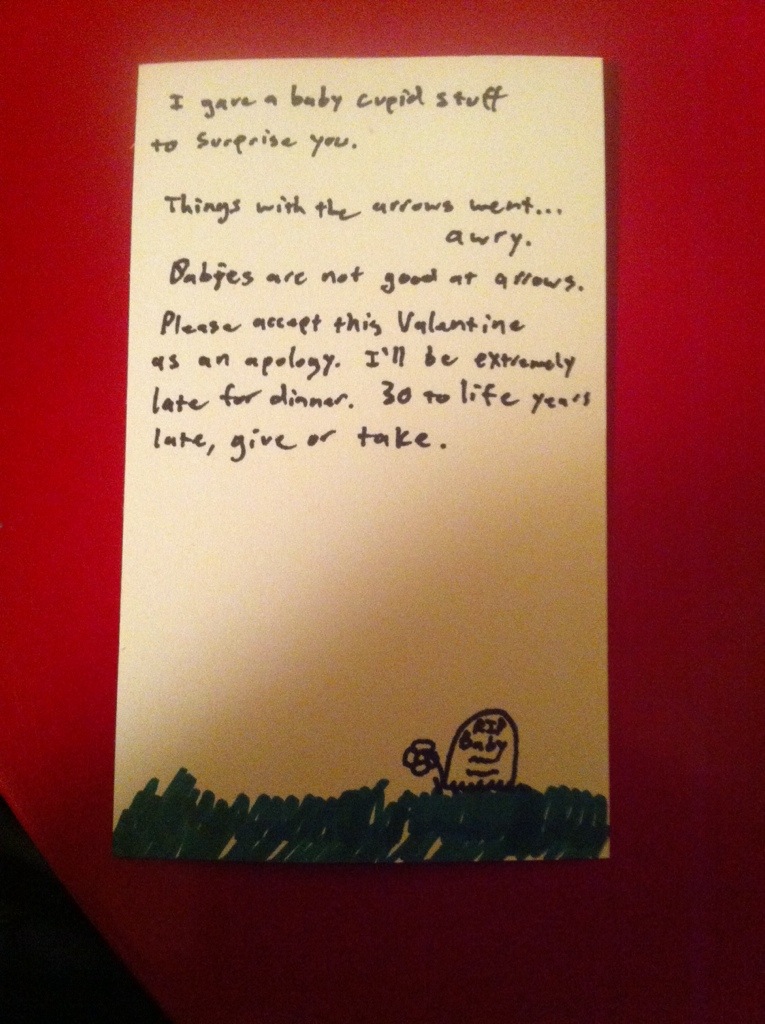 I gave a baby cupid stuff
to surprise you.
Things with the arrows went...
awry.
Babies are not good at arrows.
Please accept this Valentine
as an apology. I'll be extremely
late for dinner. 30 to life years
late, give or take.
RIP
Baby